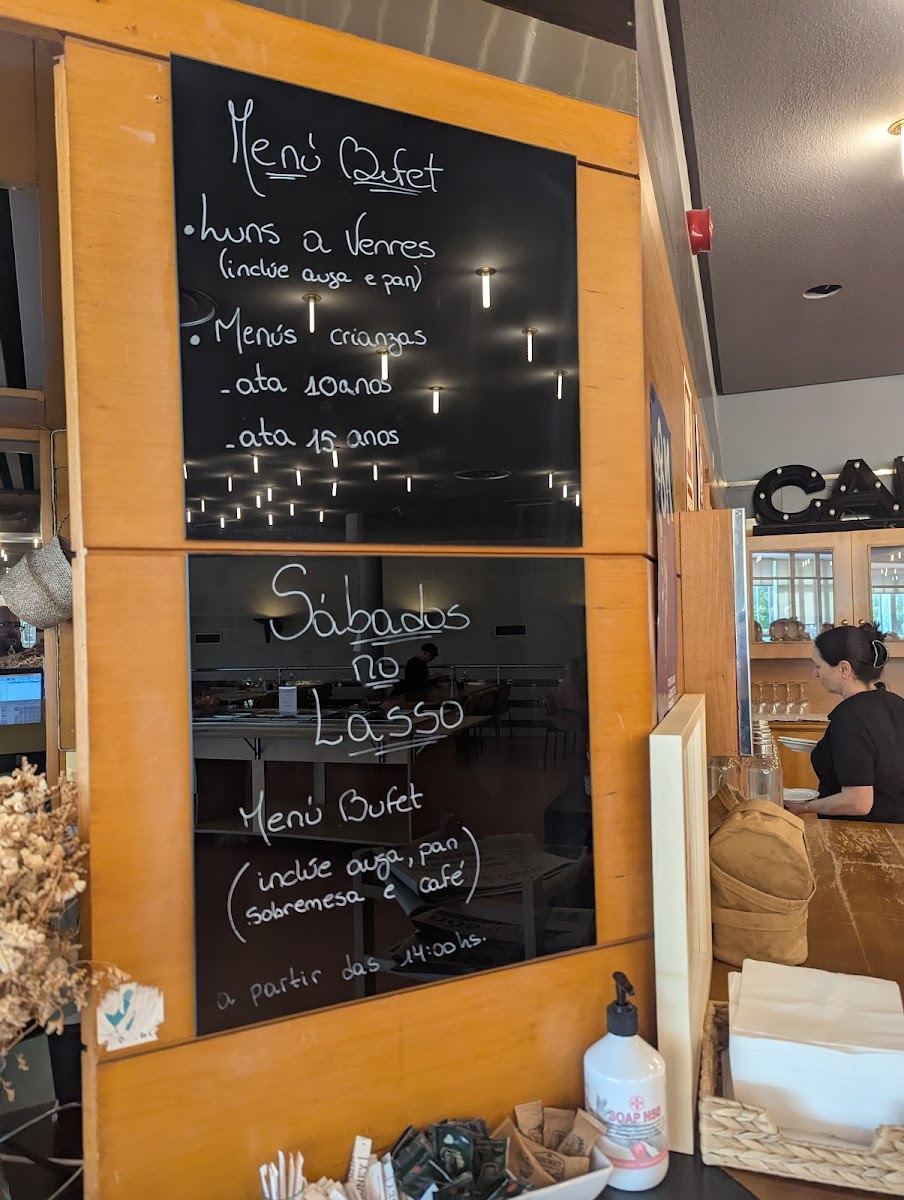 Menú Bufet
• Luns a Venres
(inclúe auga e pan)
• Menús crianzas
- ata 10 anos
- ata 15 anos
Sábados
no
Lasso
Menú Bufet
(inclúe auga, pan
sobremesa e café)
a partir das 14:00hs.
CA
SOAP H50